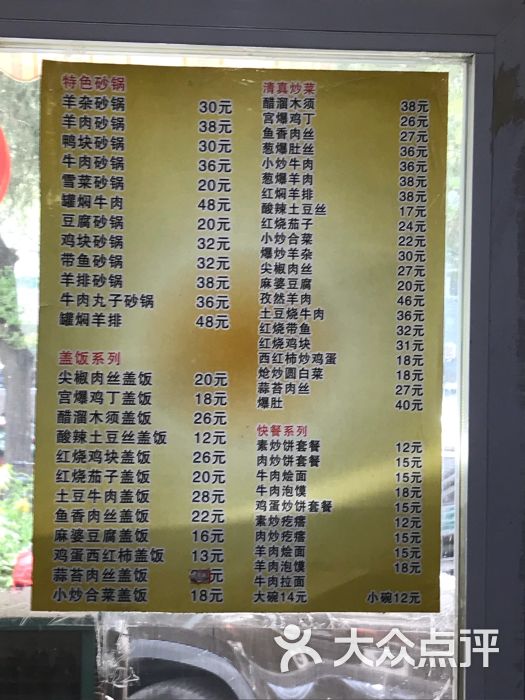 特色砂锅
羊杂砂锅 30元
羊肉砂锅 38元
鸭块砂锅 30元
牛肉砂锅 36元
雪菜砂锅 20元
罐焖牛肉 48元
豆腐砂锅 20元
鸡块砂锅 32元
带鱼砂锅 32元
羊排砂锅 38元
牛肉丸子砂锅 36元
罐焖羊排 48元
盖饭系列
尖椒肉丝盖饭 20元
宫爆鸡丁盖饭 18元
醋溜木须盖饭 26元
酸辣土豆丝盖饭 12元
红烧鸡块盖饭 26元
红烧茄子盖饭 20元
土豆牛肉盖饭 28元
鱼香肉丝盖饭 22元
麻婆豆腐盖饭 16元
鸡蛋西红柿盖饭 13元
蒜苔肉丝盖饭 元
小炒合菜盖饭 18元
清真炒菜
醋溜木须 38元
宫爆鸡丁 26元
鱼香肉丝 27元
葱爆肚丝 36元
小炒牛肉 36元
葱爆羊肉 38元
红焖羊排 38元
酸辣土豆丝 17元
红烧茄子 24元
小炒合菜 22元
爆炒羊杂 30元
尖椒肉丝 27元
麻婆豆腐 20元
孜然羊肉 46元
土豆烧牛肉 36元
红烧带鱼 32元
红烧鸡块 31元
西红柿炒鸡蛋 18元
炝炒圆白菜 18元
蒜苔肉丝 27元
爆肚 40元
快餐系列
素炒饼套餐 12元
肉炒饼套餐 15元
牛肉烩面 15元
牛肉泡馍 18元
鸡蛋炒饼套餐 15元
素炒疙瘩 12元
肉炒疙瘩 15元
羊肉烩面 15元
羊肉泡馍 18元
牛肉拉面
大碗14元 小碗12元
大众点评